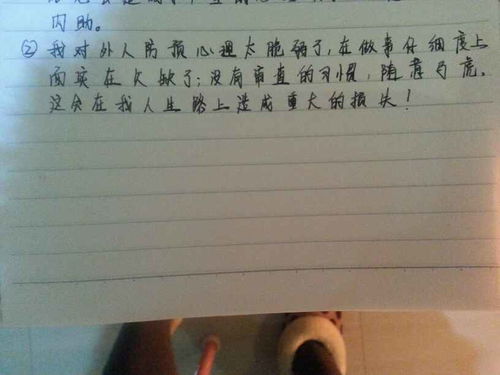 内助。
② 我对外人防损心理太脆弱了，在做事仔细度上
面实在欠缺了；没有审查的习惯，随荐马虎。
这会在我人生路上造成重大的损失！